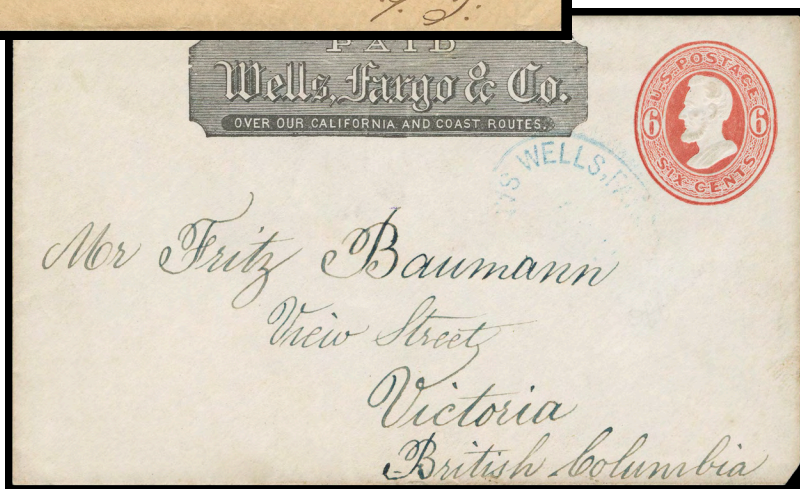 PAID
Wells, Fargo & Co.
OVER OUR CALIFORNIA AND COAST ROUTES.
U.S. POSTAGE
6 6
SIX CENTS
WELLS,
Mr Fritz Baumann
View Street
Victoria
British Columbia